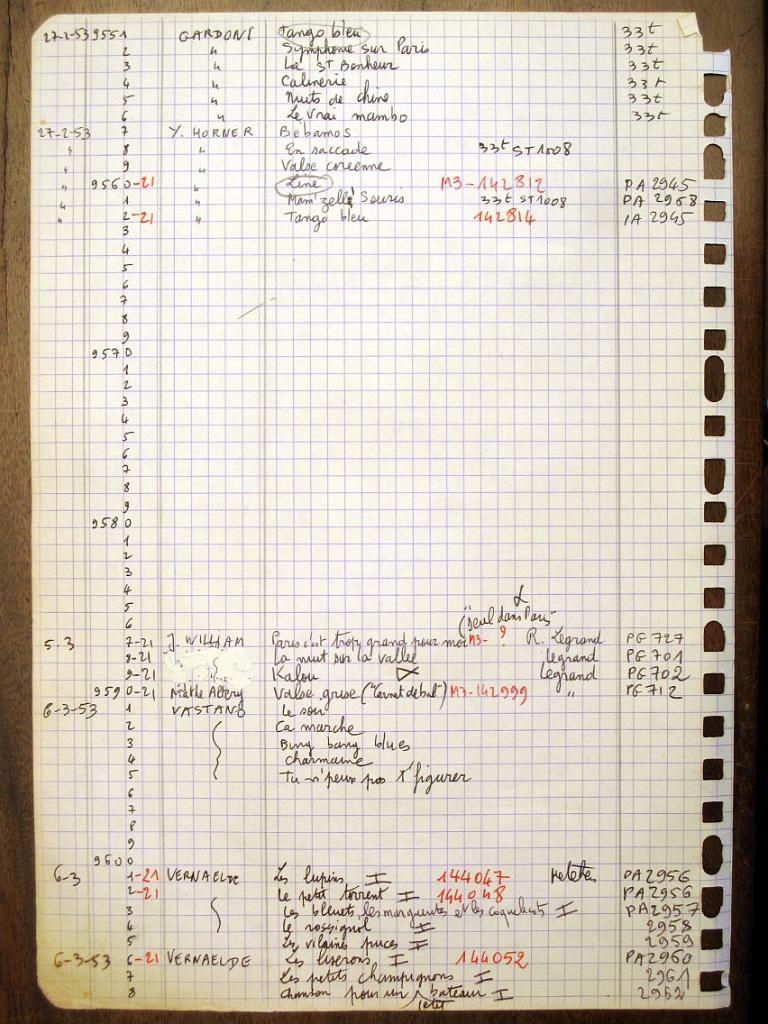 27-2-53 9551 GARDONI Tango bleu 33t
2 " Symphonie sur Paris 33t
3 " La St Bonheur 33t
4 " Calinerie 33t
5 " Nuits de chine 33t
6 " Le vrai mambo 33t
27-2-53 7 Y. HORNER Bébamos
" 8 " En saccade 33t ST1008
9 " Valse coréenne
" 9560-21 " Line M3-142812 PA 2945
" 1 " Mam'zelle Souris 33t ST1008 PA 2968
" 2-21 " Tango bleu 142814 PA 2945
3
4
5
6
7
8
9
9570
1
2
3
4
5
6
7
8
9
9580
1
2
3
4
5
6 ("Seul dans Paris"
5.3 7-21 J. WILLIAM Paris c'est trop grand pour moi M3- ? R. Legrand PG 727
8-21 La nuit sur la vallée Legrand PG 701
9-21 Kalou Legrand PG 702
9590-21 Alféry Valse grise ("Carnet de bal") M3-142999 " PG 712
6-3-53 1 VASTANO Le soir
2 Ca marche
3 Bing bang blues
4 Charmaine
5 Tu n'peux pas t'figurer
6
7
8
9
9600
6-3 1-21 VERNAELDE Les lupins I 144047 PA2956
2-21 Le petit torrent I 144048 PA2956
3 Les bleuets, les marguerites et les coquelicots I PA2957
4 Le rossignol I 2958
5 Les vilaines puces I 2959
6-3-53 6-21 VERNAELDE Les liserons I 144052 PA2960
7 Les petits champignons I 2961
8 Chanson pour un petit bateau I 2962